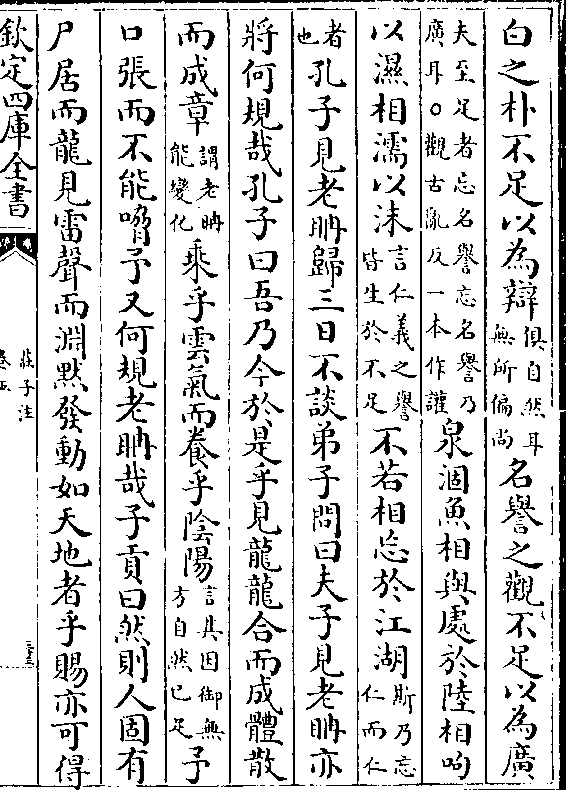 白之朴不足以為辯俱自然耳無所偏尚名譽之觀不足以為廣
夫至足者忘名譽忘名譽乃廣耳○觀古亂反一本作讙泉涸魚相與處於陸相呴
以濕相濡以沫言仁義之譽皆生於不足不若相忘於江湖斯乃忘仁而仁
者也孔子見老聃歸三日不談弟子問曰夫子見老聃亦
將何規哉孔子曰吾乃今於是乎見龍龍合而成體散
而成章謂老聃能變化乘乎雲氣而養乎陰陽言其因御無方自然已足予
口張而不能嗋予又何規老聃哉子貢曰然則人固有
尸居而龍見雷聲而淵默發動如天地者乎賜亦可得
欽定四庫全書
莊子注
卷五